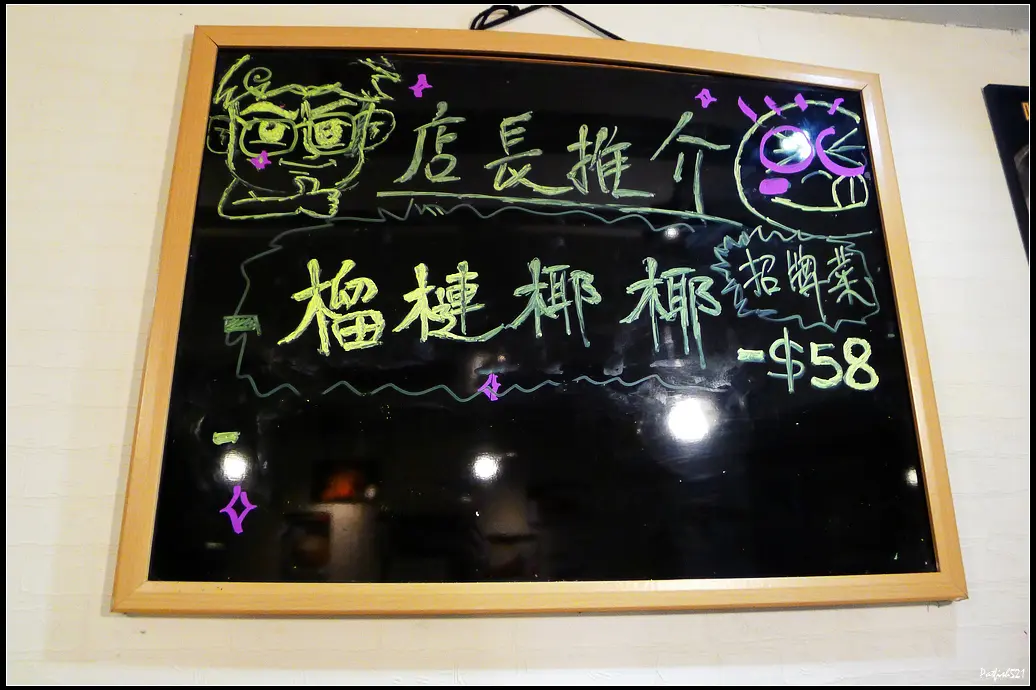 店長推介
榴槤椰椰
招牌菜
-$58
Patfish521